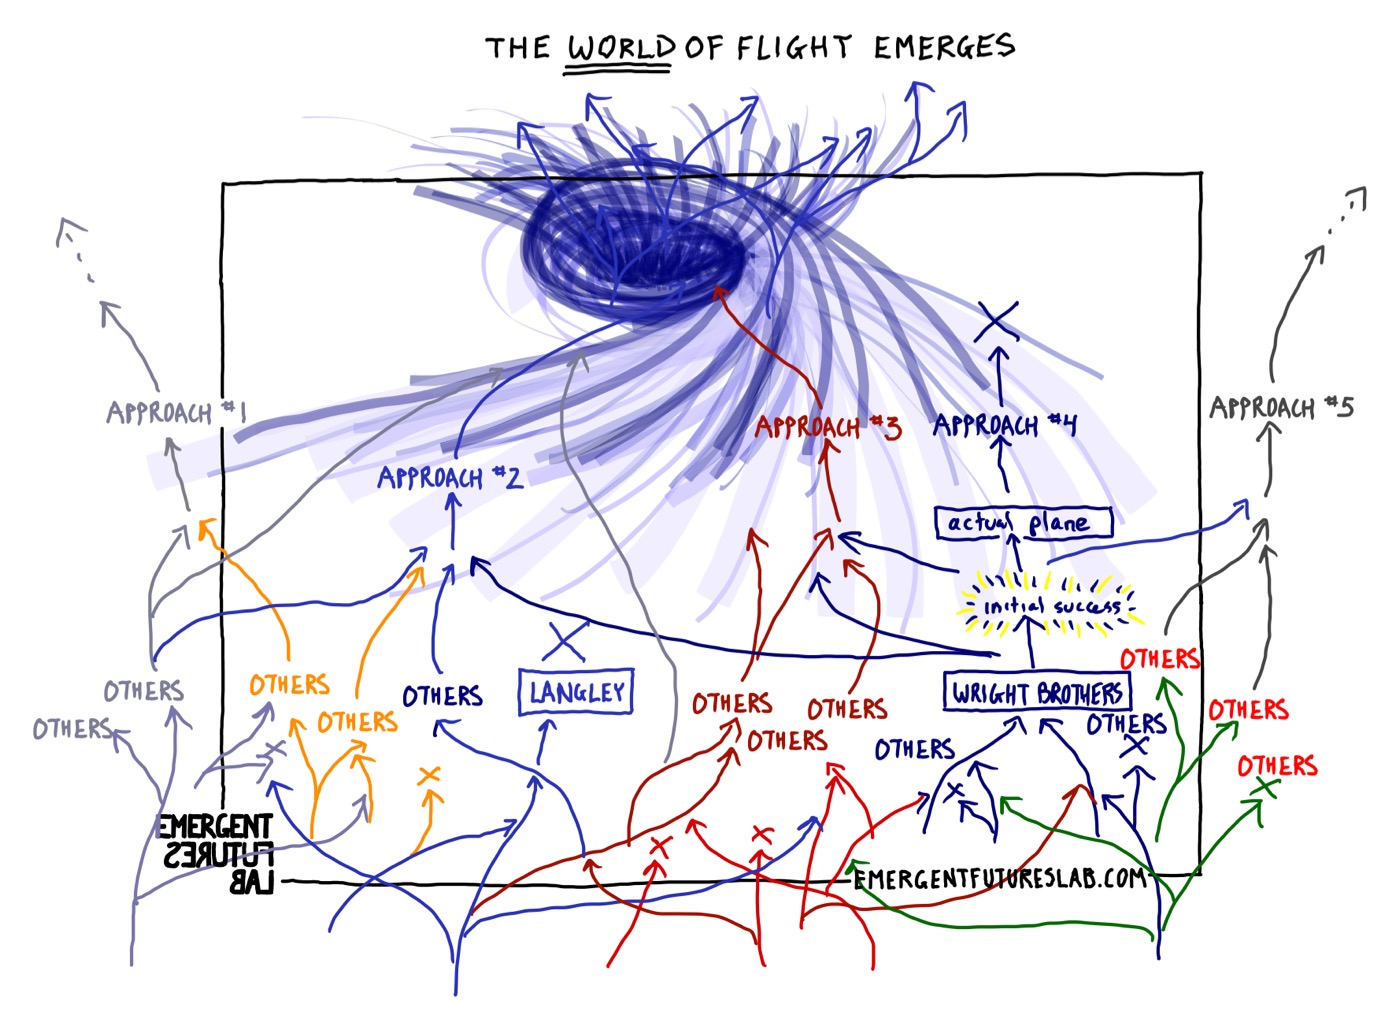 THE WORLD OF FLIGHT EMERGES
APPROACH #1
APPROACH #2
APPROACH #3
APPROACH #4
APPROACH #5
actual plane
initial success
OTHERS
OTHERS
OTHERS
OTHERS
OTHERS
LANGLEY
OTHERS
OTHERS
OTHERS
WRIGHT BROTHERS
OTHERS
OTHERS
OTHERS
OTHERS
OTHERS
EMERGENT
FUTURES
LAB
EMERGENTFUTURESLAB.COM